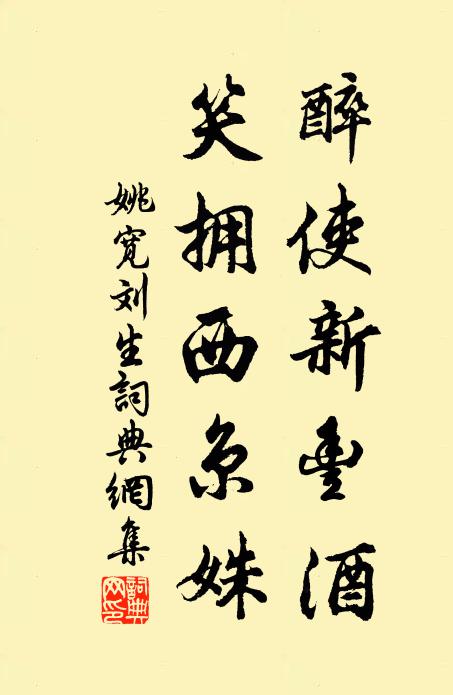 醉使新豐酒
笑拥西京姝
姚寬刘生詞典網集
詞典网印